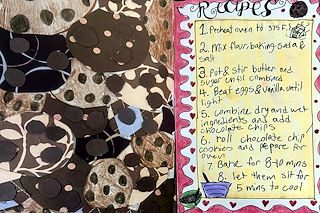 Recipes:
1. Preheat oven to 375F
2. Mix flour, baking soda &
salt
3. Pot & stir butter and
sugar until combined
4. Beat eggs & vanilla until
light
5. combine dry and wet
ingredients and add
chocolate chips
6. roll chocolate chip
cookies and prepare for
oven
7. Bake for 8-10 mins
8. let them sit for
5 mins to cool